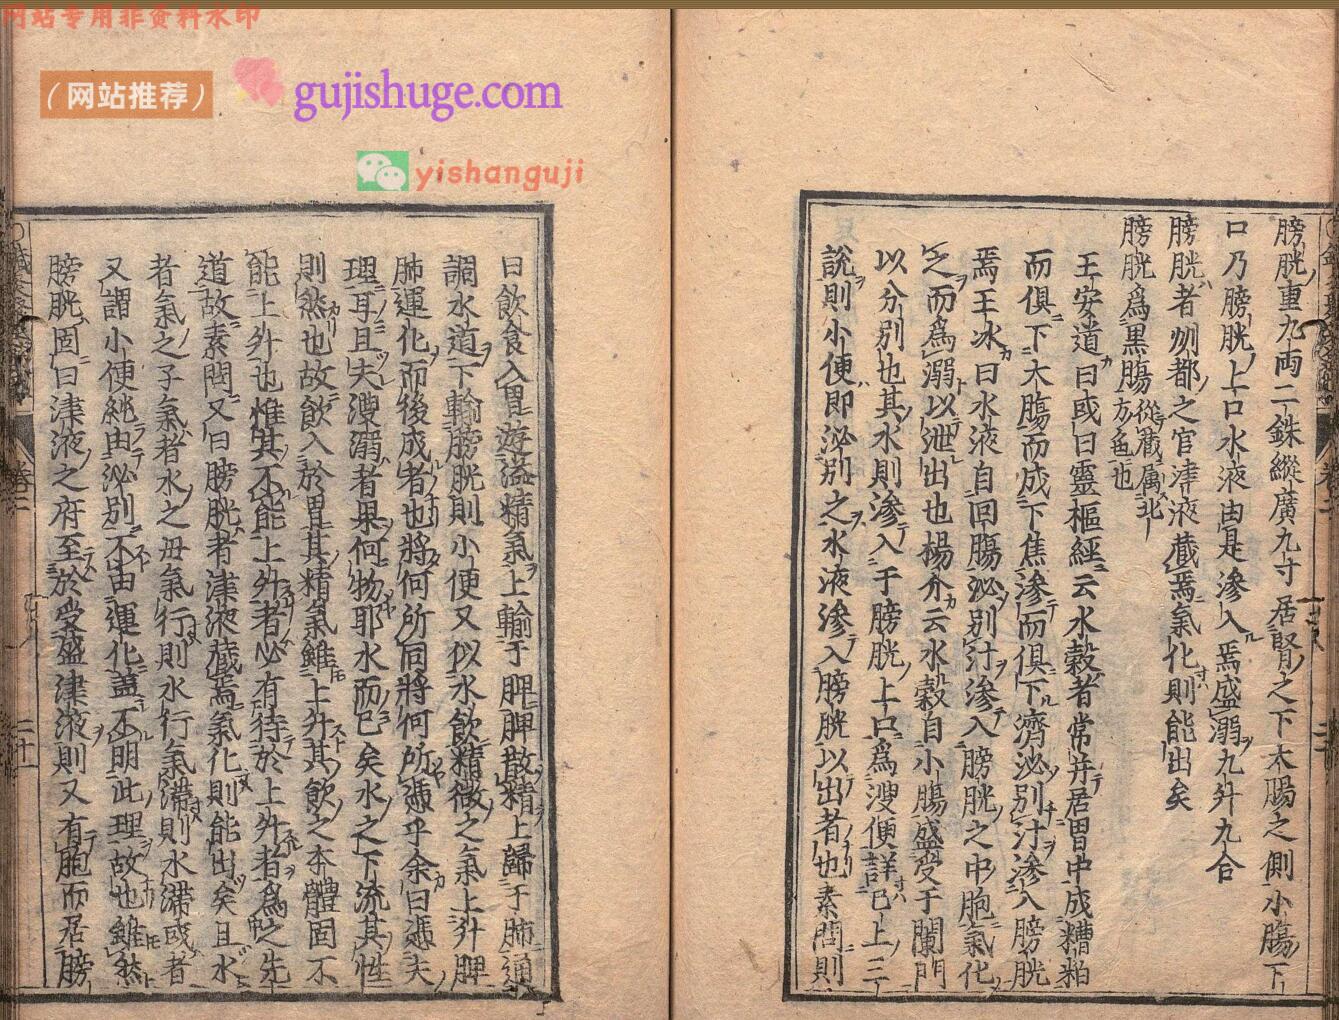 网站专用非资料水印
（网站推荐）
gujishuge.com
yishanguji
膀胱重九兩二銖縱廣九寸居腎之下大腸之側小腸下
口乃膀胱上口水液由是滲入焉盛溺九升九合
膀胱者州都之官津液藏焉氣化則能出矣
膀胱爲黒腸從藏属北方色也
王安道曰或曰靈樞經云水穀者常并居胃中成糟粕
而俱下大膓而成下焦滲而俱下濟泌別汁滲入膀胱
焉王冰曰水液自回腸泌別汁滲入膀胱之中胞氣化
之而爲溺以泄出也楊介云水穀自小膓盛受于闌門
以分別也其水則滲入于膀胱上口爲溲便詳已上三
說則小便即泌別之水液滲入膀胱以出者也素問則
曰飲食入胃遊溢精氣上輸于脾脾散精上歸于肺通
調水道下輸膀胱則小便又似水飲精微之氣上升脾
肺運化而後成者也將何所同將何所憑乎余曰憑夫
理耳且夫溲溺者果何物耶水而已矣水之下流其性
則然也故飲入於胃其精氣雖上升其飲之本體固不
能上升也惟其不能上升者必有待於上升者爲之先
道故素問又曰膀胱者津液藏焉氣化則能出矣且水
者氣之子氣者水之母氣行則水行氣滯則水滯或者
又謂小便純由泌別不由運化蓋不明此理故也雖然
膀胱固曰津液之府至於受盛津液則又有胞而居膀
卷二
卷二
二十一